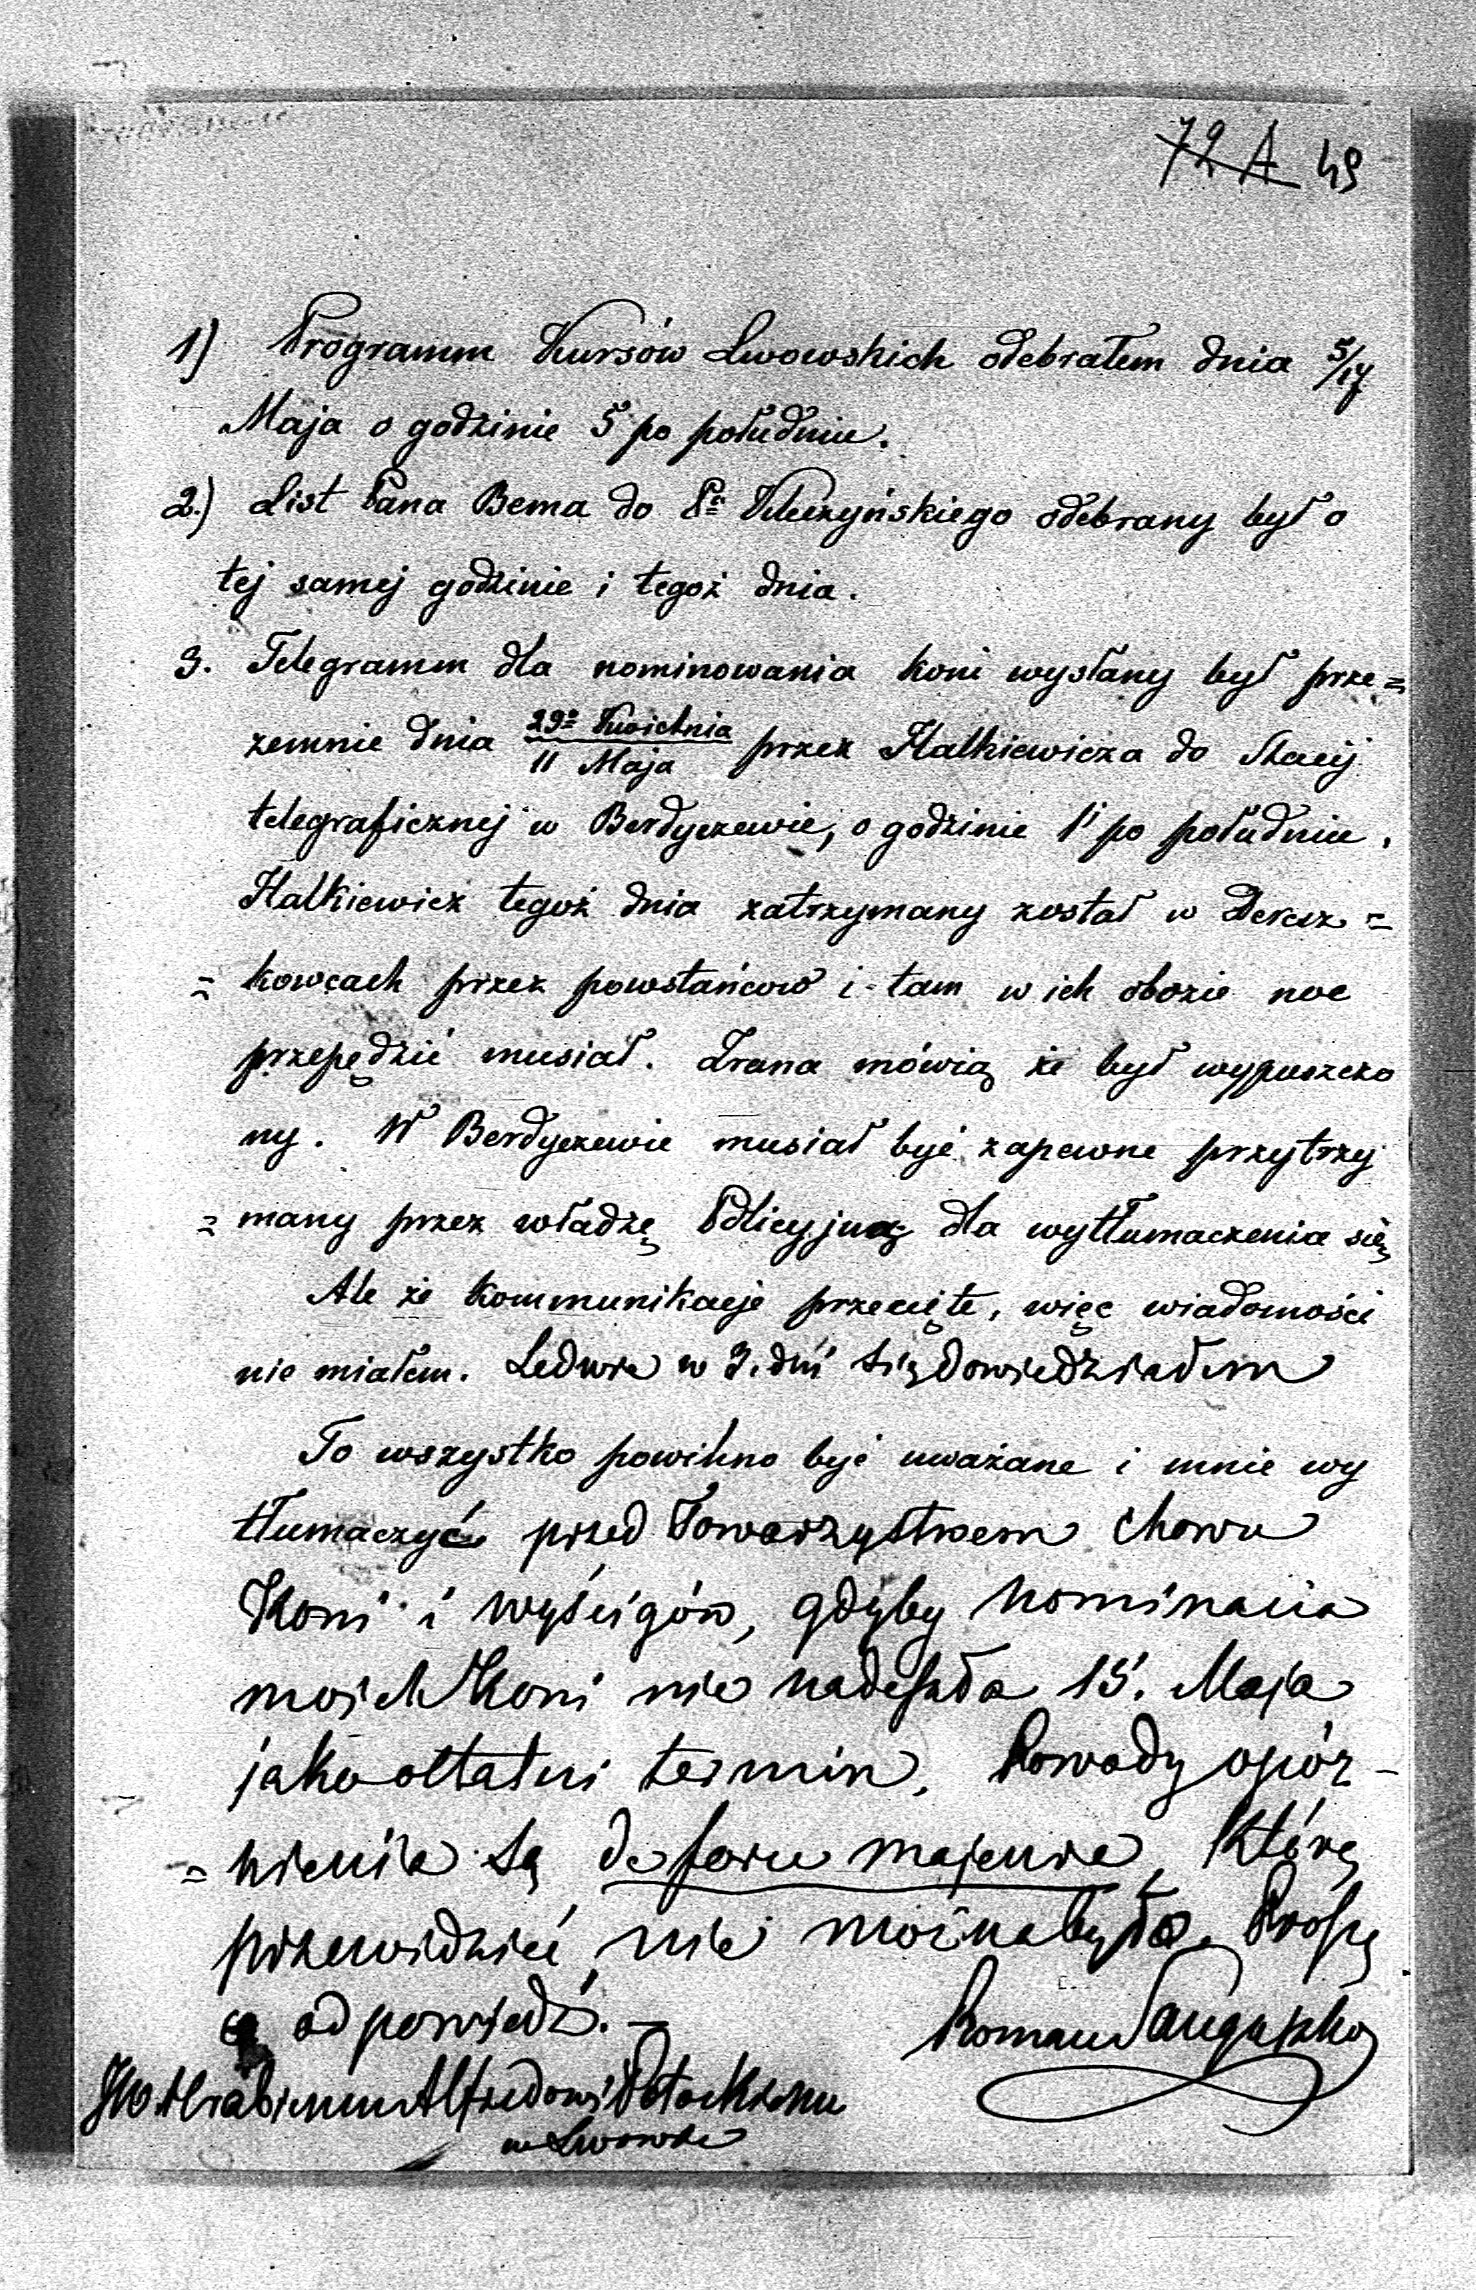 72 A 49
1) Programm Kursów Lwowskich odebrałem dnia 5/17
Maja o godzinie 5 po południu.
2.) List Pana Bema do Pa Kluczyńskiego odebrany był o
tej samej godzinie i tegoż dnia.
3. Telegramm dla nominowania koni wysłany był prze=
zemnie dnia 29o Kwietnia / 11 Maja przez Halkiewicza do Stacij
telegraficznej w Berdyczewie, o godzinie 1 po południu.
Halkiewicz tegoż dnia zatrzymany został w Deresz=
=kowcach przez powstańcow i tam w ich obozie noc
przepędzić musiał. Zrana mówią że był wypuszczo
ny. W Berdyczewie musiał być zapewne przytrzy
=many przez władzę Policyjną dla wytłumaczenia się
Ale że kommunikacje przecięte, więc wiadomości
nie miałem. Ledwie w 3. dni się dowiedziałem
To wszystko powinno być uważane i mnie wy
tłumaczyć przed Towarzystwem chowu
Koni i wyścigów, gdyby nominacia
moich Koni nie nadeszła 15. Maja
jako ostatni termin. Powody opóź-
=nienia są de force majeure, którą
przewidzieć nie można było. Proszę
o odpowiedź. —
Roman Sanguszko
JW. Hrabiemu Alfredowi Potockiemu
we Lwowie